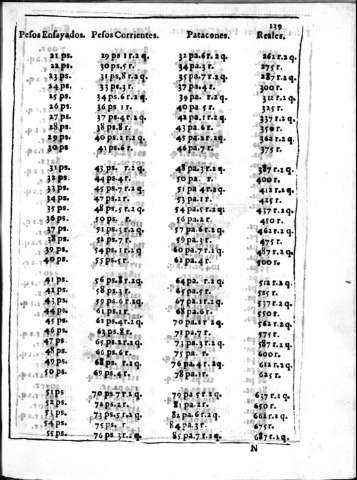 129
Pesos Ensayados. Pesos Corrientes. Patacones. Reales.
21 ps. 29 ps 1 r. 2 q. 32 pa. 6 r. 2 q. 262 r. 2 q.
22 ps. 30 ps. 5 r. 34 pa. 3 r. 275 r.
23 ps. 31 ps, 8 r. 2 q. 35 pa. 7 r. 2 q. 287 r. 2 q.
24 ps. 33 ps. 3 r. 37 pa. 4 r. 300 r.
25 ps. 34 ps. 6 r. 2 q. 39 pa. r. 2 q. 312 r. 2 q.
26 ps. 36 ps 1 r. 40 pa. 5 r. 325 r.
27 ps. 37 ps. 4 r. 2 q. 42 pa. 1 r. 2 q. 337 r. 2 q.
28 ps. 38 ps. 8 r. 43 pa. 6 r. 350 r.
29 ps. 40 ps. 2 r. 2 q. 45 pa. 2 r. 2 q. 362 r. 2 q.
30 ps 41 ps. 6 r. 46 pa. 7 r. 375 r.
31 ps. 43 ps. r. 2 q. 48 pa. 3 r. 2 q. 387 r. 2 q.
32 ps. 44 ps. 4 r. 50 pa. r. 400 r.
33 ps. 45 ps. 7 r. 2 q. 51 pa 4 r. 2 q. 412 r. 2 q.
34 ps. 47 ps. 2 r. 53 pa. 1 r. 425 r.
35 ps. 48 ps. 5 r. 2 q. 54 pa. 5 r. 2 q. 437 r. 2 q.
36 ps. 50 ps. 56 pa. 2 r. 450 r.
37 ps. 51 ps. 3 r. 2 q. 57 pa. 6 r. 2 q. 462 r. 2 q.
38 ps. 52 ps. 7 r. 59 pa. 3 r. 475 r.
39 ps. 54 ps. 1 r. 2 q. 60 pa. 7 r. 2 q. 487 r. 2 q.
40 ps. 55 ps. 5 r. 62 pa. 4 r. 500 r.
41 ps. 56 ps. 8 r. 2 q. 64 pa. r. 2 q. 512 r. 2 q.
42 ps. 58 ps. 3 r. 65 pa. 5 r. 525 r.
43 ps. 59 ps. 6 r. 2 q. 67 pa. 1 r. 2 q. 537 r. 2 q.
44 ps. 61 ps. 1 r. 68 pa. 6 r. 550 r.
45 ps. 62 ps. 4 r. 2 q. 70 pa. 2 r. 2 q. 562 r. 2 q.
46 ps. 63 ps. 8 r. 71 pa. 7 r. 575 r.
47 ps. 65 ps. 2 r. 2 q. 73 pa. 3 r. 2 q. 587 r. 2 q.
48 ps. 66 ps. 6 r. 75 pa. r. 600 r.
49 ps. 68 ps. r. 2 q. 76 pa. 4 r. 2 q. 612 r. 2 q.
50 ps. 69 ps. 4 r. 78 pa. 1 r. 625 r.
51 ps 70 ps. 7 r. 2 q. 79 pa 5 r. 2 q. 637 r. 2 q.
52 ps. 72 ps. 2 r. 81 pa. 2 r. 650 r.
53 ps. 73 ps. 5 r. 2 q. 82 pa. 6 r. 2 q. 662 r. 2 q.
54 ps. 75 ps. r 84 pa. 3 r. 675 r.
55 ps. 76 ps. 3 r. 2 q. 85 pa. 7 r. 2 q. 687 r. 2 q.
N